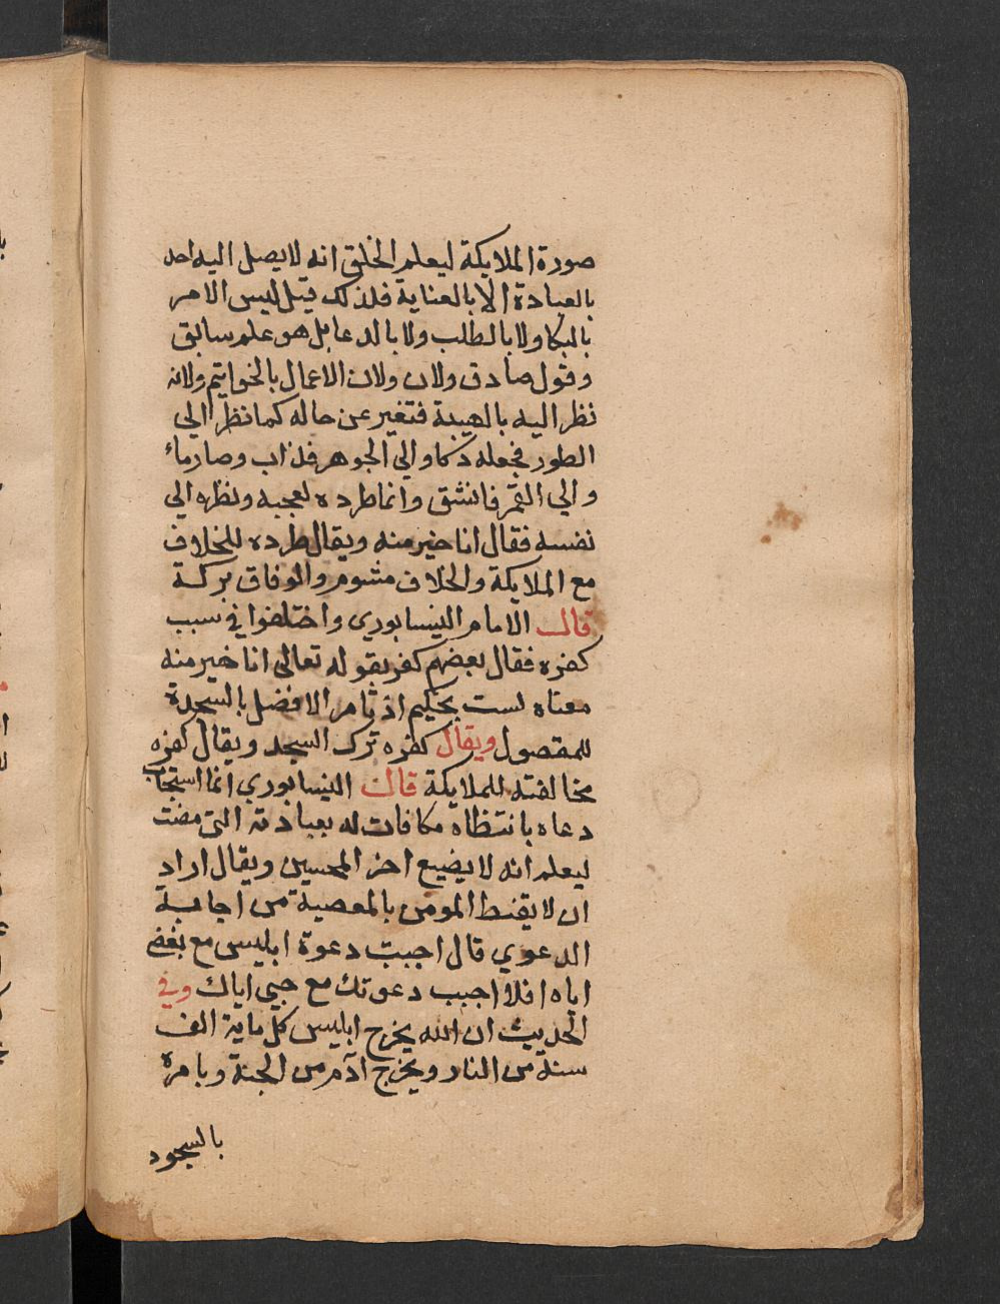 صورة الملايكة ليعلم الخلق انه لا يصل اليه احد
بالعبادة الا بالعناية فلذلك قيل ليس الامر
بالبكا ولا بالطلب ولا بالدعا بل هو علم سابق
وقول صادق ولان ولان الاعمال بالخواتيم ولانه
نظر اليه بالهيبة فتغير عن حاله كما نظر الي
الطور فجعله دكا والي الجوهر فذاب وصار ماء
والي القمر فانشق وانما طرده لعجبه ونظره الي
نفسه فقال انا خير منه ويقال طرده للخلاف
مع الملايكة والخلاف مشوم والوفاق بركة
قال الامام النيسابوري واختلفوا في سبب
كفره فقال بعضهم كفر بقوله تعالى انا خير منه
معناه لست بحكيم اذ تامر الافضل بالسجدة
للمفصول ويقال كفره ترك السجد ويقال كفره
مخالفته للملايكة قال النيسابوري انما استجاب
دعاه بانتظاه مكافات له بعبادته التي مضت
ليعلم انه لا يضيع اجر المحسين ويقال اراد
ان لا يقنط المومن بالمعصية من اجابة
الدعوي قال اجبت دعوة ابليس مع بغضي
اياه افلا اجيب دعوتك مع حبي اياك وفي
الحديث ان الله يخرج ابليس كل ماية الف
سنة من النار ويخرج آدم من الجنة ويامره
بالسجود